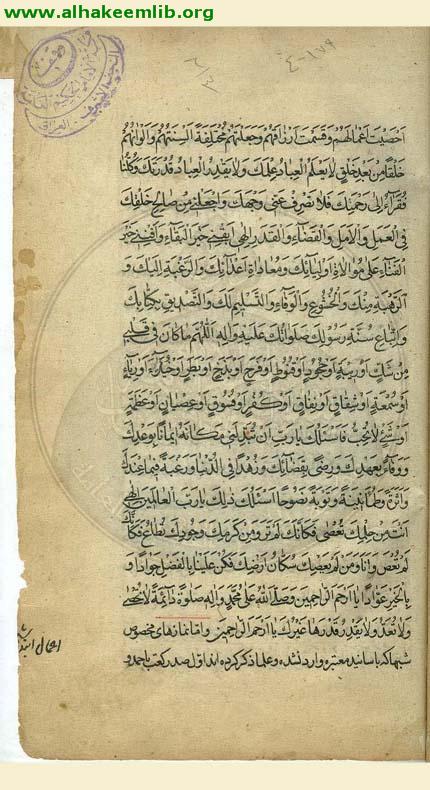 www.alhakeemlib.org
٤-١٧٩
اَحْصَيْتَ اَعْمالَهُمْ وَقَسَمْتَ اَرْزاقَهُمْ وَجَعَلْتَهُمْ مُخْتَلِفَةً اَلْسِنَتُهُمْ وَاَلْوانُهُمْ
خَلْقًا مِنْ بَعْدِ خَلْقٍ لا يَعْلَمُ الْعِبادُ عِلْمَكَ وَلا يَقْدِرُ الْعِبادُ قَدْرَكَ وَكُلُّنا
فُقَراءُ اِلى رَحْمَتِكَ فَلا تَصْرِفْ عَنّى وَجْهَكَ وَاجْعَلْنى مِنْ صالِحِ خَلْقِكَ
فِى الْعَمَلِ وَالْاَمَلِ وَالْقَضاءِ وَالْقَدَرِ اِلهى اَبْقِنى خَيْرَ الْبَقاءِ وَاَفْنِنى خَيْرَ
الْفَناءِ عَلى مُوالاةِ اَوْلِيائِكَ وَمُعاداةِ اَعْدائِكَ وَالرَّغْبَةِ اِلَيْكَ وَ
الرَّهْبَةِ مِنْكَ وَالْخُشُوعِ وَالْوَفاءِ وَالتَّسْليمِ لَكَ وَالتَّصْديقِ بِكِتابِكَ
وَاتِّباعِ سُنَّةِ رَسُولِكَ صَلَواتُكَ عَلَيْهِ وَالِهِ اَللّهُمَّ ما كانَ فى قَلْبى
مِنْ شَكٍّ اَوْ رَيْبَةٍ اَوْ جُحُودٍ اَوْ قُنُوطٍ اَوْ فَرَحٍ اَوْ بَذَخٍ اَوْ بَطَرٍ اَوْ خُيَلاءَ اَوْ رِياءٍ
اَوْ سُمْعَةٍ اَوْ شِقاقٍ اَوْ نِفاقٍ اَوْ كُفْرٍ اَوْ فُسُوقٍ اَوْ عِصْيانٍ اَوْ عَظَمَةٍ
اَوْ شَىْءٍ لا تُحِبُّ فَاَسْئَلُكَ يا رَبِّ اَنْ تُبَدِّلَنى مَكانَهُ ايمانًا بِوَعْدِكَ
وَوَفاءً بِعَهْدِكَ وَرِضًى بِقَضائِكَ وَزُهْدًا فِى الدُّنْيا وَرَغْبَةً فيما عِنْدَكَ
وَاَثَرَةً وَطُمَأْنينَةً وَتَوْبَةً نَصُوحًا اَسْئَلُكَ ذلِكَ يا رَبَّ الْعالَمينَ اِلهى
اَنْتَ مِنْ حِلْمِكَ تُعْصى فَكَاَنَّكَ لَمْ تَرَ وَمِنْ كَرَمِكَ وَجُودِكَ تُطاعُ فَكَاَنَّكَ
لَمْ تُعْصَ وَاَنَا وَمَنْ لَمْ يَعْصِكَ سُكّانُ اَرْضِكَ فَكُنْ عَلَيْنا بِالْفَضْلِ جَوادًا وَ
بِالْخَيْرِ عَوّادًا يا اَرْحَمَ الرّاحِمينَ وَصَلَّى اللهُ عَلى مُحَمَّدٍ وَالِهِ صَلوةً دائِمَةً لا تُحْصى
وَلا تُعَدُّ وَلا يَقْدِرُ قَدْرَها غَيْرُكَ يا اَرْحَمَ الرّاحِمينَ واما نمازهاى مخصوص
شبها كه باسانيد معتبره وارد نشده وعلما ذكر كرده اند اول صد ركعت باحمد و
اعمال